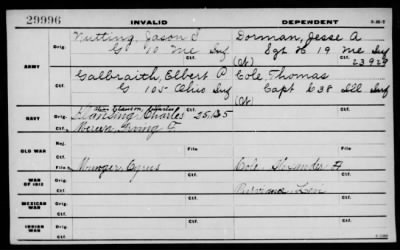 29996 INVALID DEPENDENT 3-25-7
ARMY Orig. Nutting, Jason S Dorman, Jesse A
G 10 Me Inf Sgt H 19 Me Inf
Ctf. (Ct) 23929
Orig. Galbraith, Elbert P Cole Thomas
G 105 Ohio Inf Capt C 38 Ill Inf
Ctf. (Ct)
NAVY Orig. Charles 25,135
Ctf. Irving F.
OLD WAR Rej.
Ctf. File File
WAR OF 1812 Orig. Munger Cyrus Cole, A
Ctf. Levi
MEXICAN WAR Orig.
Ctf.
INDIAN WAR Orig.
Ctf.